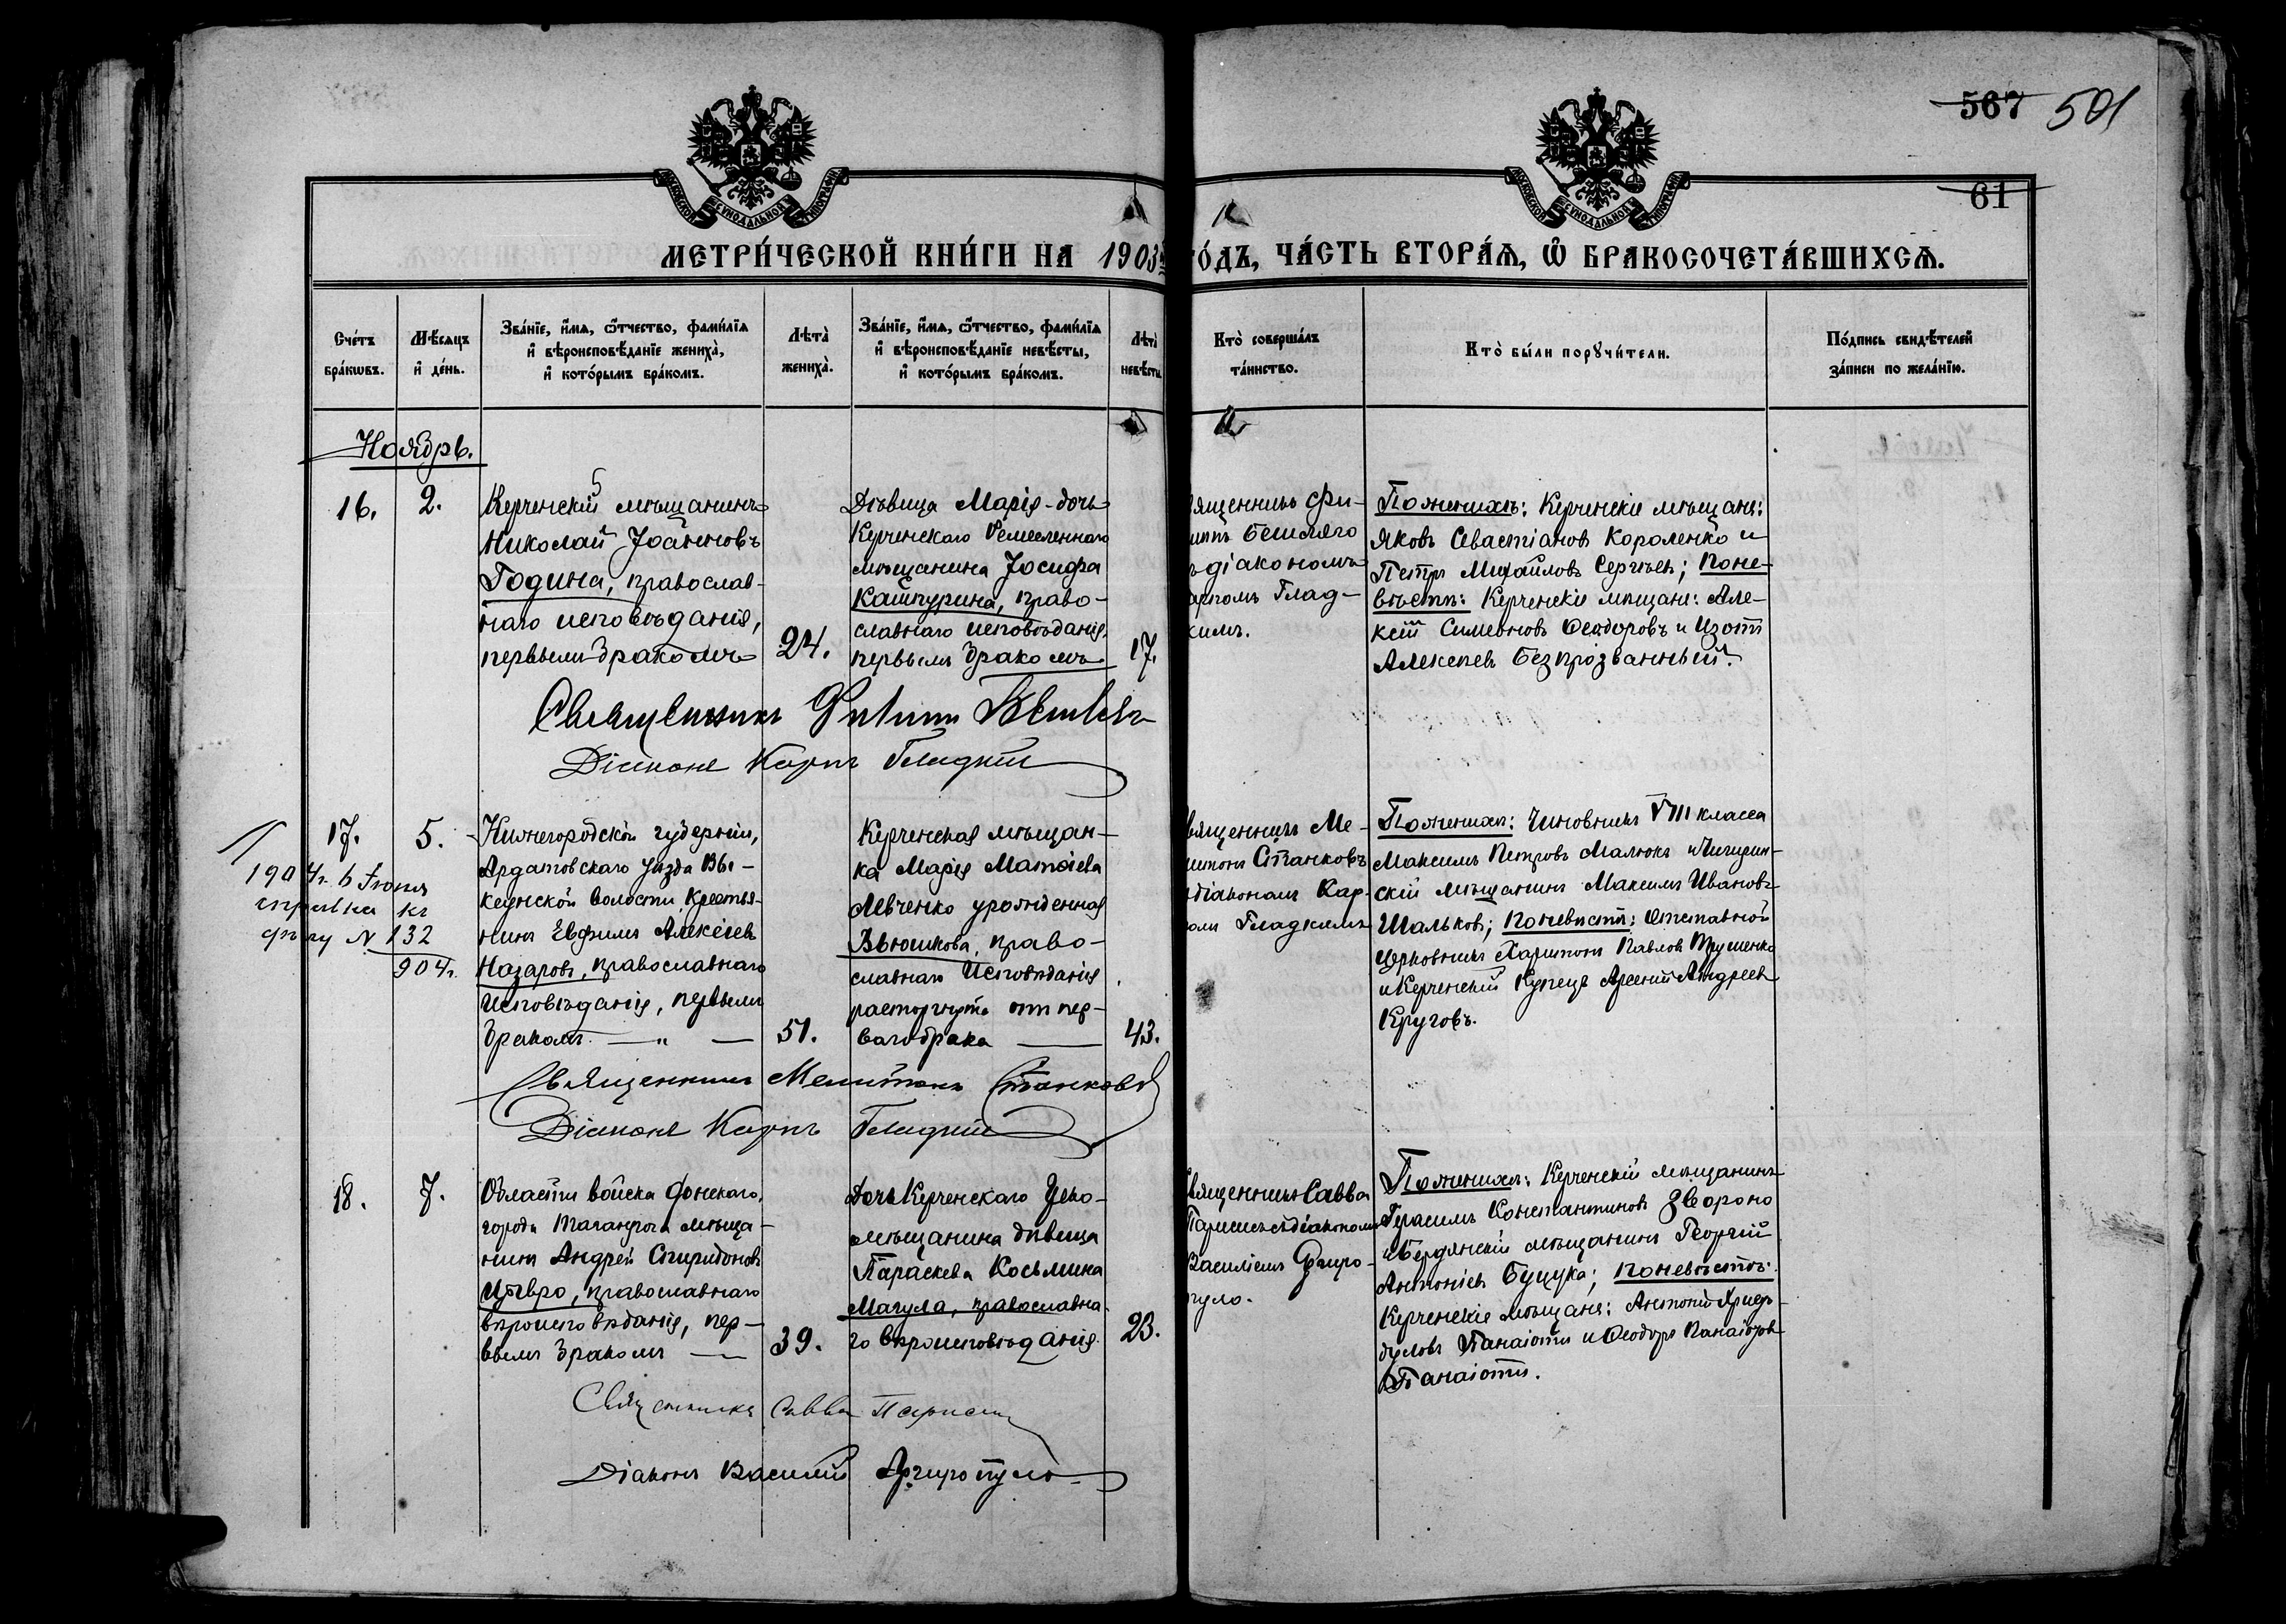 567 501
61
МОСКОВСКОЙ СѴНОДАЛЬНОЙ ТИПОГРАФІИ
МОСКОВСКОЙ СѴНОДАЛЬНОЙ ТИПОГРАФІИ
МЕТРИ́ЧЕСКОЙ КНИ́ГИ НА 1903 ГО́ДЪ, ЧА́СТЬ ВТОРА́Ѧ, Ѡ҆ БРАКОСОЧЕТА́ВШИХСѦ.
Сче́тъ
бра́кѡвъ.
Мѣ́сѧцъ
и҆ де́нь.
Зва́нїе, и҆́мѧ, ѻ҆́тчество, фамилїѧ
и҆ вѣроисповѣ́данїе жениха̀,
и҆ кото́рымъ бра́комъ.
Лѣта̀
жениха̀.
Зва́нїе, и҆́мѧ, ѻ҆́тчество, фами́лїѧ
и҆ вѣроисповѣ́данїе невѣ́сты,
и҆ кото́рымъ бра́комъ.
Лѣта̀
невѣ́сты
Кто̀ соверша́лъ
та́инство.
Кто̀ бы́ли порꙋчи́тели.
По́дпись свидѣ́телей
за́писи по жела́нїю.
Ноябрь.
16.
2.
Керченскій мѣщанинъ
Николай Іоанновъ
Година, православ-
наго исповѣданія,
первымъ бракомъ
24.
Дѣвица Марія - дочь
Керченскаго Ремесленнаго
мѣщанина Іосифа
Кашпурина, право-
славнаго исповѣданія,
первымъ бракомъ
17.
ященникъ Фи-
иппъ Бешляго
ъ діакономъ
арпомъ Глад-
кимъ.
По женихѣ: Керченскіе мѣщане:
Яковъ Севастіановъ Короленко и
Петръ Михайловъ Сергѣевъ; по не-
вѣстѣ: Керченскіе мѣщане: Але-
ксѣй Симеоновъ Ѳеодоровъ и Изотъ
Алексѣевъ Безпрозванный.
Священникъ Филиппъ
Діаконъ Карпъ Гладкій
17.
5.
1904г. 6 Іюня
справка къ
№ 132
904г.
Нижегородской губерніи,
Ардатовскаго уѣзда Вы-
ксунской волости, Крестья-
нинъ Евфимъ Алексѣевъ
Назаровъ, православнаго
исповѣданія, первымъ
бракомъ. — „ —
51.
Керченская мѣщан-
ка Марія Матѳіева
Левченко урожденная
Вьюшкова, право-
славнаго исповѣданія
расторгнута отъ пер-
ваго брака —
43.
вященникъ Ме-
литонъ Станковъ
діакономъ Кар-
омъ Гладкимъ
По женихѣ: Чиновникъ VIII класса
Максимъ Петровъ Малюкъ и Чигирин-
скій мѣщанинъ Максимъ Ивановъ
Шальковъ; по невѣстѣ: Отставной
Церковникъ Харитонъ Павловъ Трушенко
и Керченскій Купецъ Арсеній Андреевъ
Круговъ.
Священникъ Мелитонъ Станковъ
Діаконъ Карпъ Гладкій
18.
7.
Области войска Донскаго,
города Таганрога мѣща-
нинъ Андрей Спиридоновъ
православнаго
вѣроисповѣданія, пер-
вымъ бракомъ —
39.
Дочь Керченскаго Цехо-
мѣщанина дѣвица
Параскева Косьмина
Магула, православна-
го вѣроисповѣданія.
23.
вященникъ Савва
Парисисъ съ діакономъ
Василіемъ Аргиро-
пуло.
По женихѣ: Керченскій мѣщанинъ
Герасимъ Константиновъ Зворono
и Бердянскій мѣщанинъ Георгій
Антоніевъ Буцука; по невѣстѣ:
Керченскіе мѣщане: Антоній
Панаіоти и Ѳеодоръ Панаіотовъ
Панаіоти.
Священникъ Савва Парисисъ
Діаконъ Василій Аргиропуло